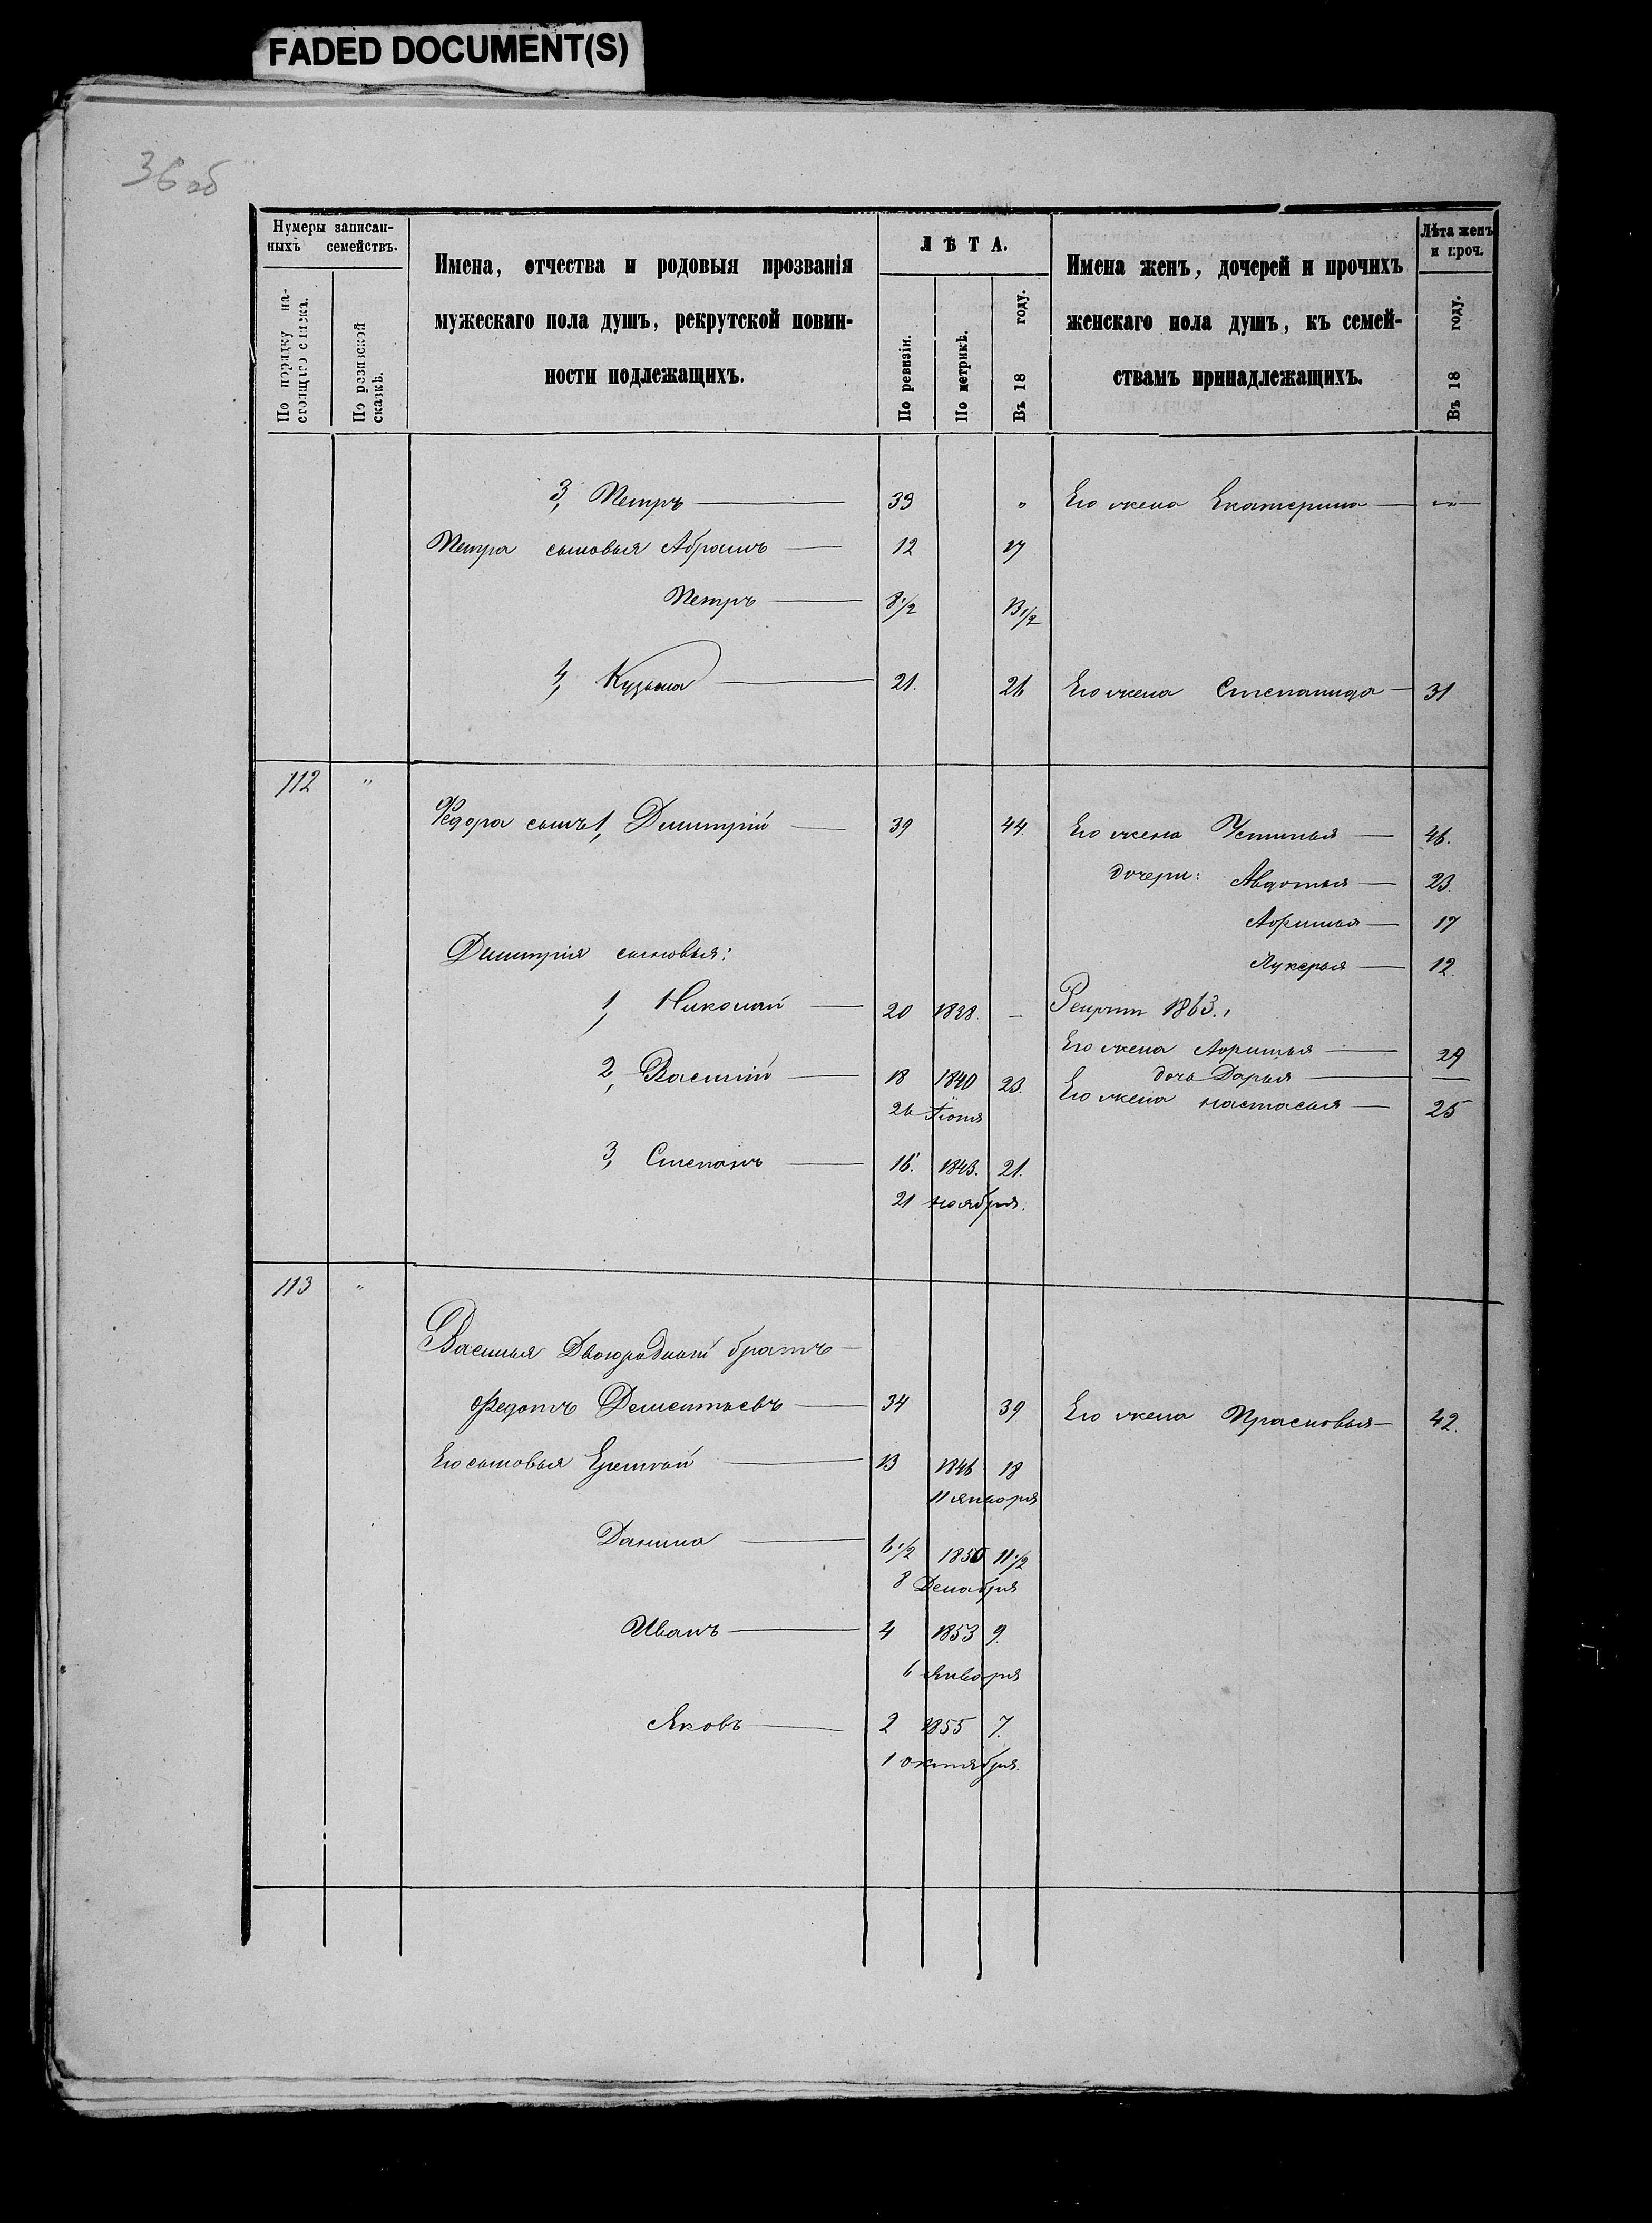 FADED DOCUMENT(S)
36 об
Нумеры записан-
ныхъ семействъ.
По порядку на-
стоящаго списка.
По ревизской
сказкѣ.
Имена, отчества и родовыя прозванія
мужескаго пола душъ, рекрутской повин-
ности подлежащихъ.
ЛѢТА.
По ревизіи.
По метрикѣ.
Въ 18 году.
Имена женъ, дочерей и прочихъ
женскаго пола душъ, къ семей-
ствамъ принадлежащихъ.
Лѣта женъ
и проч.
Въ 18 году.
3, Петръ — 33 " Его жена Екатерина — "
Петра сыновья Абрамъ — 12 17
Петръ — 8 1/2 13 1/2
4, Кузьма — 21. 26 Его жена Степанида — 31
112 "
Федора сынъ 1, Димитрій — 39 44 Его жена Устинья — 46.
дочери: Авдотья — 23.
Аоримья — 17
Димитрія сыновья: Лукерья — 12.
1, Николай — 20 1838. — Рекрут 1863.,
Его жена Аоримья — 29
2, Василій — 18 1840 23. дочь Дарья —
26 Іюня Его жена Настасья — 25
3, Степанъ — 16. 1843. 21.
21 Ноября.
113 "
Василья Двоюродный братъ —
Федотъ Дементьевъ — 34 39 Его жена Прасковья — 42.
Его сыновья — 13 1846 18
11 Января
Данила — 6 1/2 1850 11 1/2
8 Декабря
Иванъ — 4 1853 9.
6 Января
Яковъ — 2 1855 7.
1 Октября.